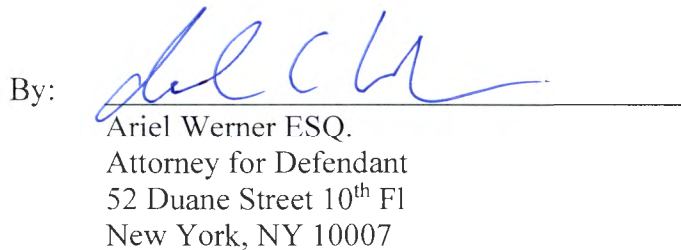 By:
Ariel Werner ESQ.
Attorney for Defendant
52 Duane Street 10th Fl
New York, NY 10007